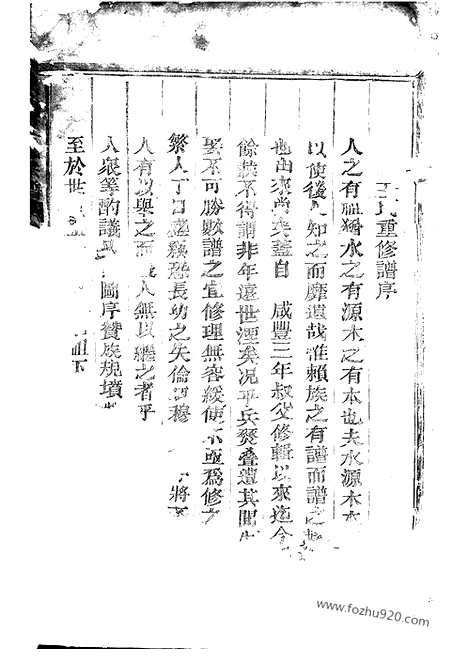 王氏重修譜序
人之有祖猶水之有源木之有本也夫水源木本
以使後人知之而靡遺哉惟賴族之有譜而譜之
也由來尚矣蓋自 咸豐三年叔父修輯以來迄今
餘載不得謂非年遠世湮矣况乎兵燹疊遭其間
不可勝數譜之宜修理無容緩使不亟爲修
繁人丁日 恐長幼之失倫昭穆 將
人有以與之而 人無以繼之者乎
人衆等酌議 圖序贊族規墳
至於世 祖
www.fozhu920.com